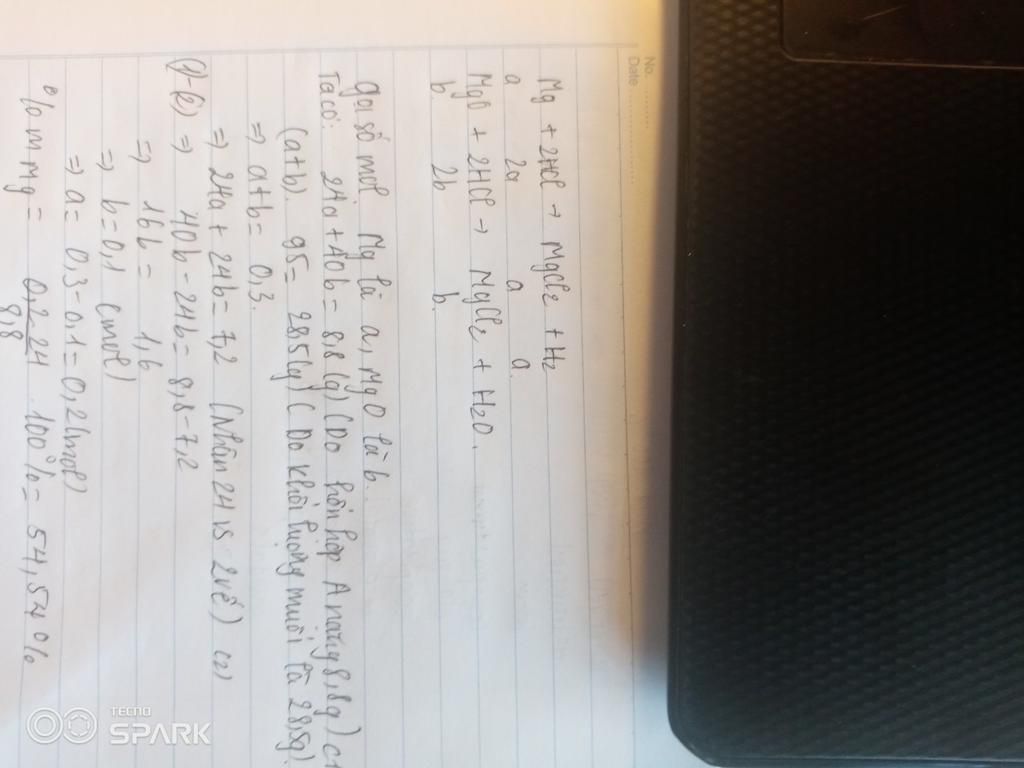 No.
Date
Mg + 2HCl → MgCl2 + H2
a 2a a a
MgO + 2HCl → MgCl2 + H2O.
b 2b b
gọi số mol Mg là a, MgO là b.
Ta có: 24a + 40b = 8,8 (g) (Do hỗn hợp A nặng 8,8g) (1
(a+b). 95 = 28,5(g) (Do khối lượng muối là 28,5g)
=> a+b = 0,3.
=> 24a + 24b = 7,2 (Nhân 24 vs 2 vế) (2)
(1)-(2) => 40b - 24b = 8,8 - 7,2
=> 16b = 1,6
=> b = 0,1 (mol)
=> a = 0,3 - 0,1 = 0,2 (mol)
% m Mg = 0,2.24 . 100% = 54,54%
8,8
TECNO
SPARK